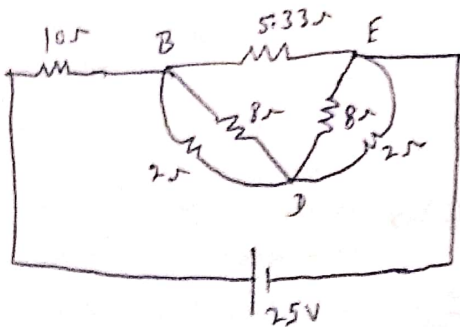 10Ω B 5.33Ω E
8Ω 8Ω
2Ω 2Ω
D
25V